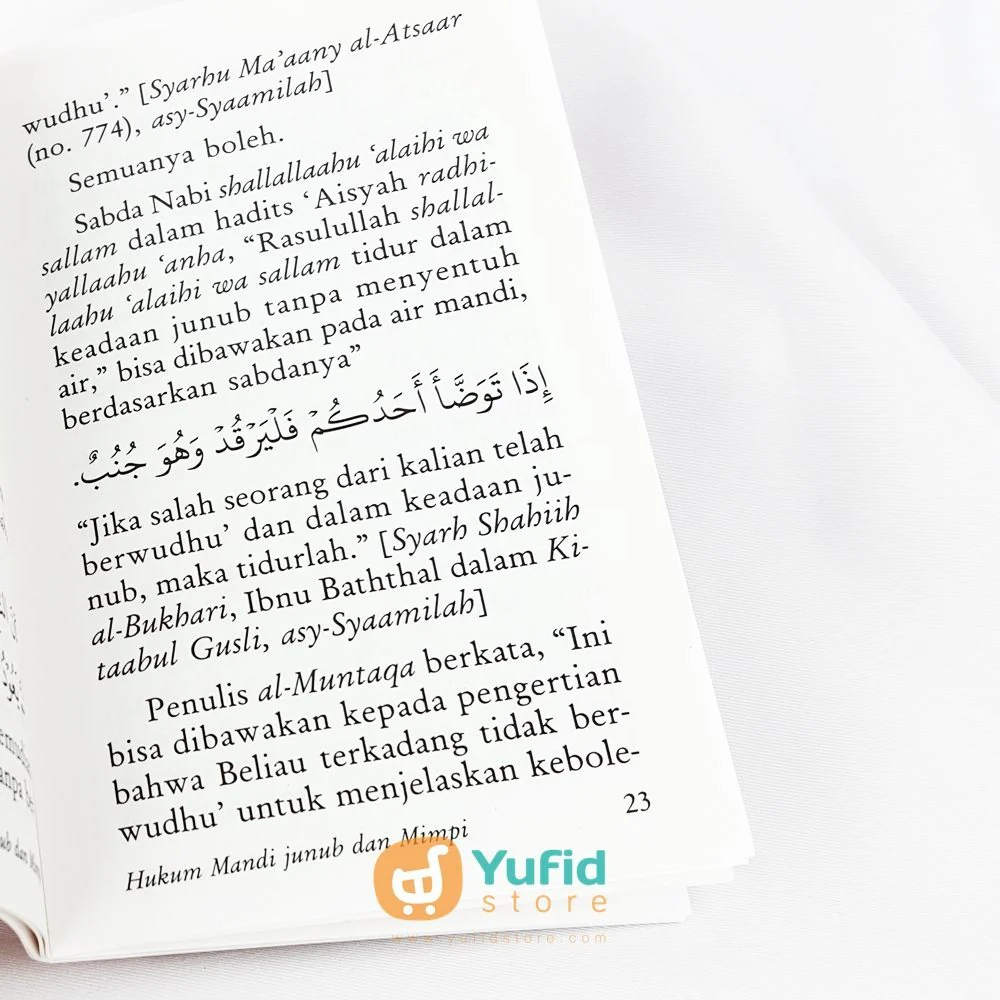 wudhu'." [Syarhu Ma'aany al-Atsaar
(no. 774), asy-Syaamilah]
Semuanya boleh.
Sabda Nabi shallallaahu 'alaihi wa
sallam dalam hadits 'Aisyah radhi-
yallaahu 'anha, "Rasulullah shallal-
laahu 'alaihi wa sallam tidur dalam
keadaan junub tanpa menyentuh
air," bisa dibawakan pada air mandi,
berdasarkan sabdanya"
إِذَا تَوَضَّأَ أَحَدُكُمْ فَلْيَرْقُدْ وَهُوَ جُنُبٌ.
"Jika salah seorang dari kalian telah
berwudhu' dan dalam keadaan ju-
nub, maka tidurlah." [Syarh Shahiih
al-Bukhari, Ibnu Baththal dalam Ki-
taabul Gusli, asy-Syaamilah]
Penulis al-Muntaqa berkata, "Ini
bisa dibawakan kepada pengertian
bahwa Beliau terkadang tidak ber-
wudhu' untuk menjelaskan kebole-
23
Hukum Mandi junub dan Mimpi
Yufid
store
www.yufidstore.com